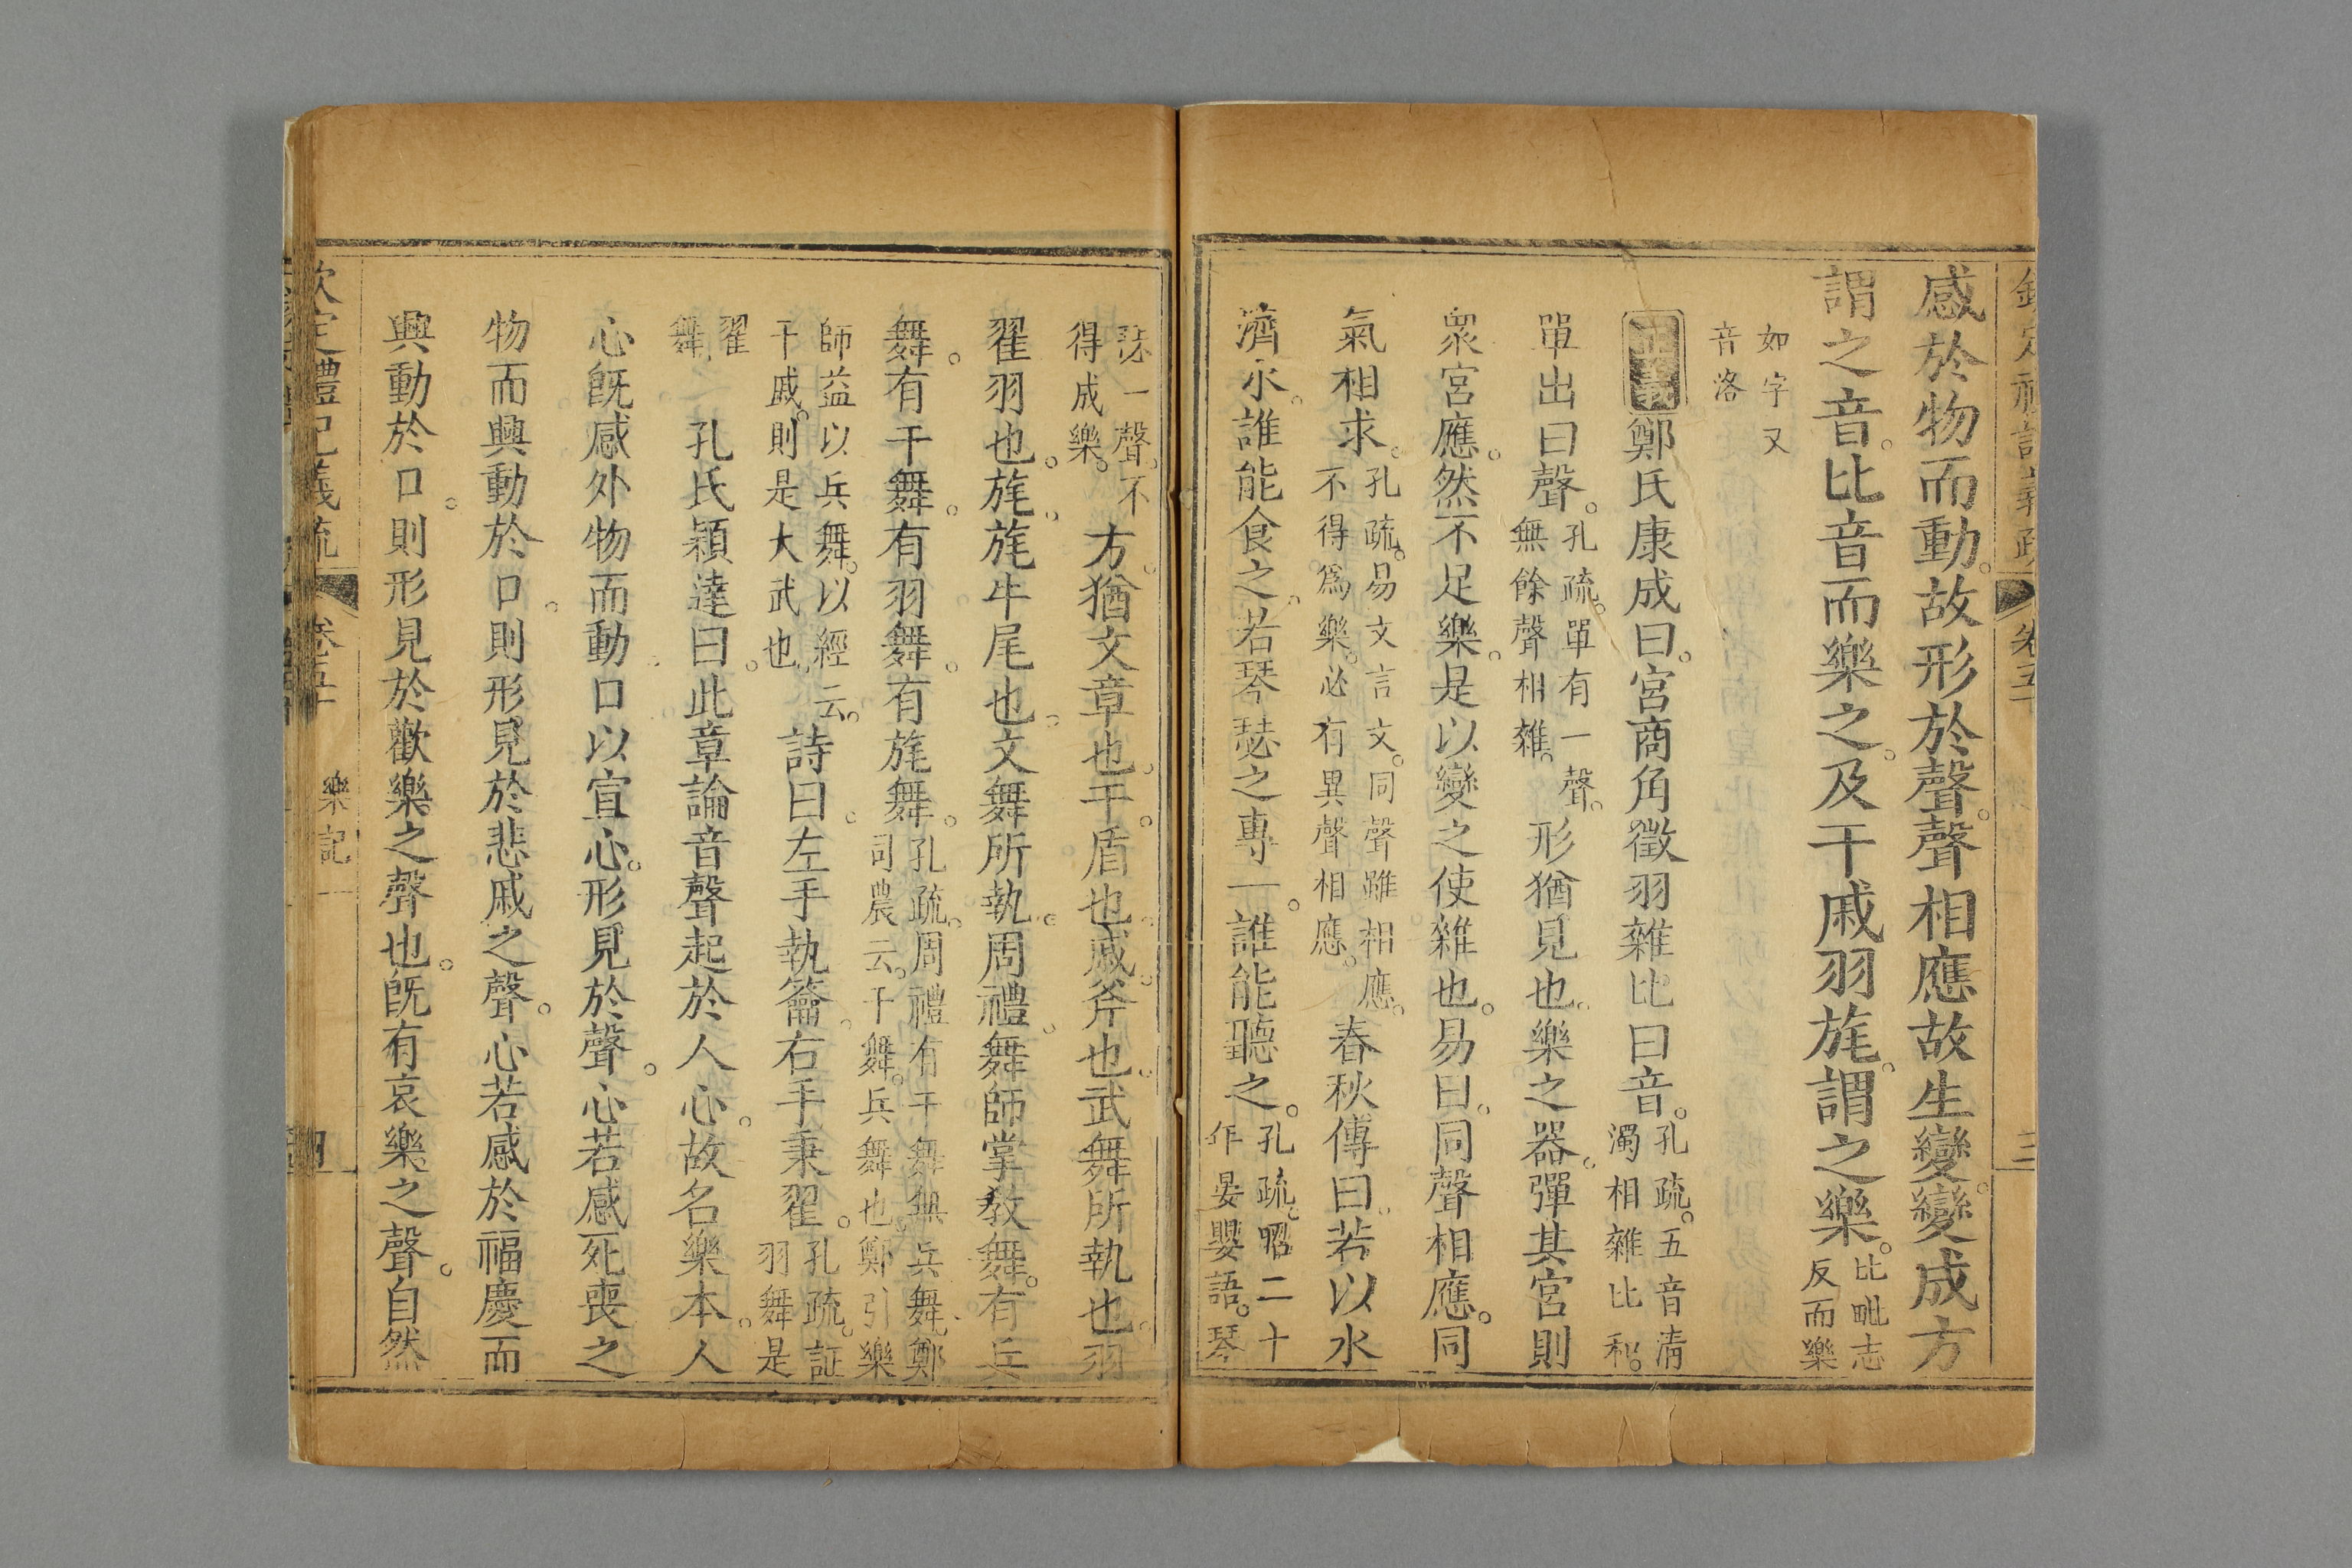 感於物而動。故形於聲。聲相應故生變。變成方
謂之音。比音而樂之。及干戚羽旄。謂之樂。比毗志反而樂
如字又音洛
鄭氏康成曰。宮商角徵羽雜比曰音。孔疏。五音清濁相雜比和。
單出曰聲。孔疏。單有一聲。無餘聲相雜。形猶見也。樂之器。彈其宮則
衆宮應。然不足樂。是以變之使雜也。易曰。同聲相應。同
氣相求。孔疏。易文言文。同聲雖相應。不得爲樂。必有異聲相應。春秋傳曰。若以水
濟水。誰能食之。若琴瑟之專一。誰能聽之。孔疏。昭二十作晏嬰語。琴
瑟一聲。不得成樂。方。猶文章也。干。盾也。戚。斧也。武舞所執也。羽
翟羽也。旄。旄牛尾也。文舞所執。周禮。舞師掌敎舞。有兵
舞。有干舞。有羽舞。有旄舞。孔疏。周禮有干舞無兵舞。鄭司農云。干舞。兵舞也。鄭引樂
師益以兵舞。以經云。干戚。則是大武也。詩曰。左手執籥。右手秉翟。孔疏。証羽舞是
翟舞 孔氏穎達曰。此章論音聲起於人心。故名樂本。人
心旣感外物而動。口以宣心。形見於聲。心若感死喪之
物而興動於口。則形見於悲戚之聲。心若感於福慶而
興動於口。則形見於歡樂之聲也。旣有哀樂之聲。自然
欽定禮記義疏 卷五十 樂記一